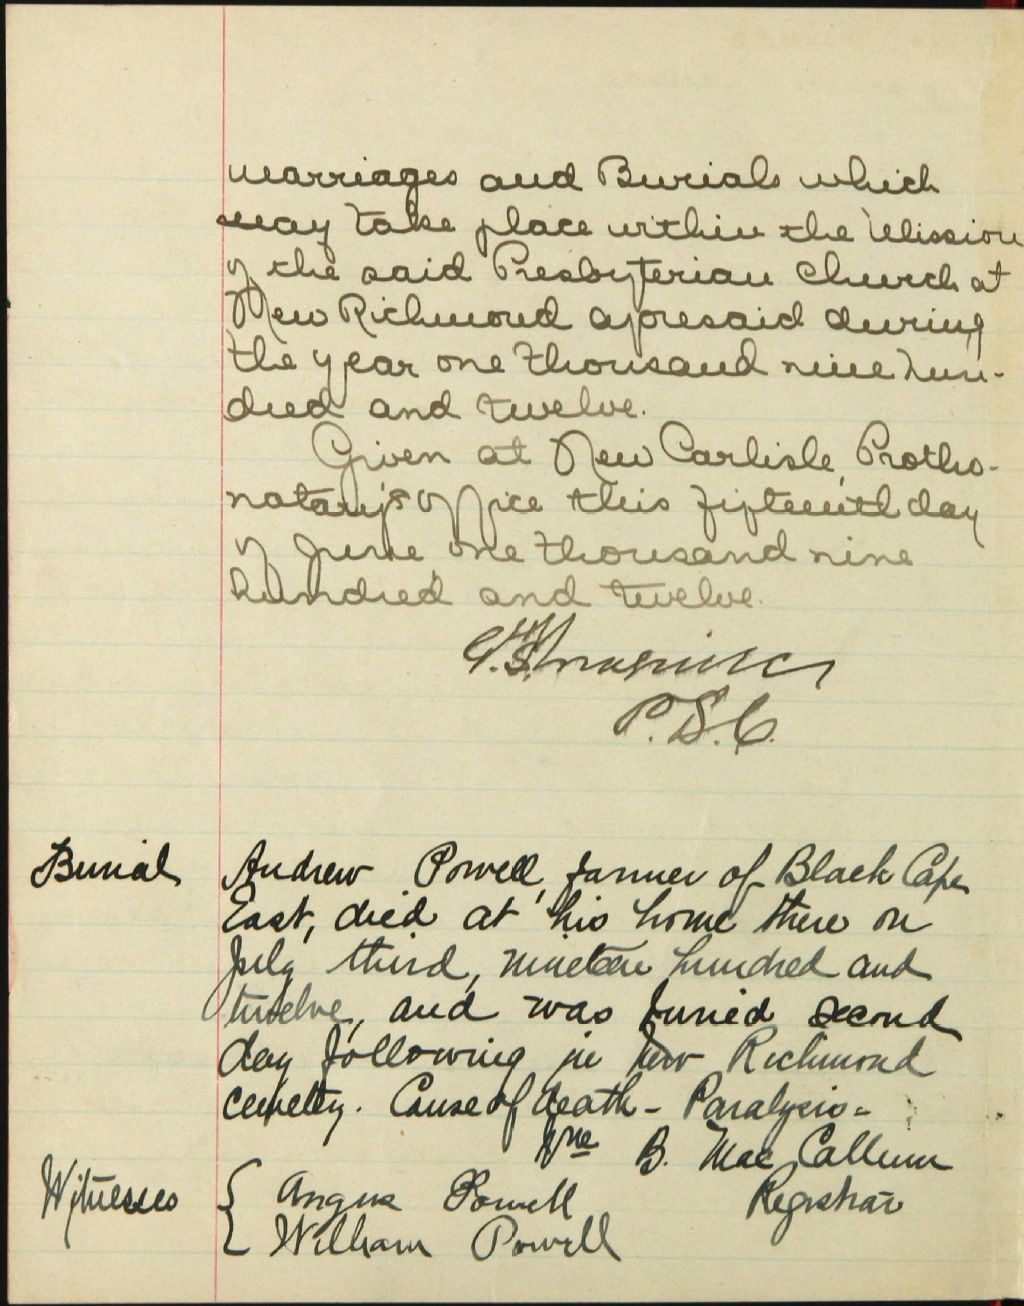 marriages and Burials which
may take place within the Mission
of the said Presbyterian Church at
New Richmond aforesaid during
the year one thousand nine hun-
dred and twelve.
Given at New Carlisle, Protho-
notary's office this fifteenth day
of June, one thousand nine
hundred and twelve.
P.S.C.
Burial Andrew Powell, farmer of Black Cape
East, died at his home there on
July third, nineteen hundred and
twelve, and was buried second
day following in New Richmond
cemetery. Cause of death - Paralysis -
Wm B. MacCallum
Witnesses { Angus Powell Registrar
William Powell